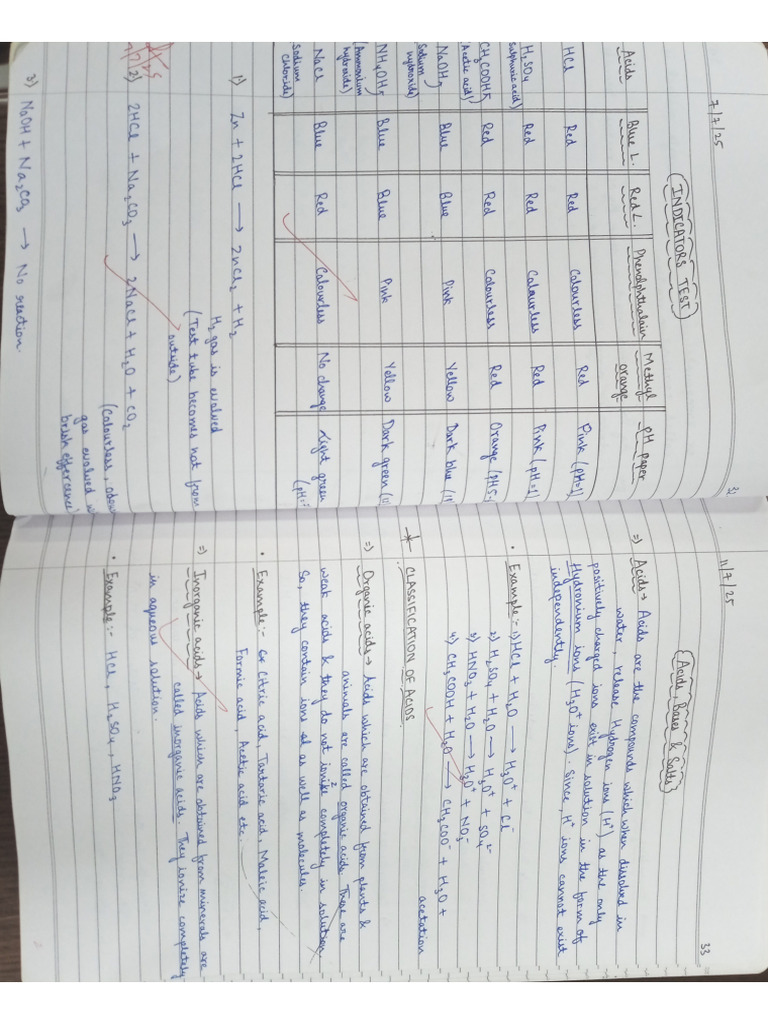 7/7/25
INDICATORS TEST
Acids Blue L. Red L. Phenolphthalain Methyl orange pH paper
HCl Red Red Colourless Red Pink (pH=1)
H2SO4 Red Red Colourless Red Pink (pH=1)
(Sulphuric acid)
CH3COOH Red Red Colourless Red Orange (pH5
(Acetic acid)
NaOH Blue Blue Pink Yellow Dark blue (
(Sodium hydroxide)
NH4OH Blue Blue Pink Yellow Dark green (11)
(Ammonium hydroxide)
NaCl Blue Red Colourless No change Light green
(Sodium chloride) (pH=7
1) Zn + 2HCl → ZnCl2 + H2
H2 gas is evolved
(Test tube becomes hot from
outside)
2) 2HCl + Na2CO3 → 2NaCl + H2O + CO2
(Colourless, odou
gas evolved w
brisk efferrence
3) NaOH + Na2CO3 → No reaction.
11/7/25
33
Acids, Bases & Salts
⇒ Acids → Acids are the compounds which when dissolved in
water, release Hydrogen ions (H+) as the only
positively charged ions exist in solution in the form of
Hydronium ions (H3O+ ions). Since, H+ ions cannot exist
independently.
• Example:- 1) HCl + H2O → H3O+ + Cl-
2) H2SO4 + H2O → H3O+ + SO4 2-
3) HNO3 + H2O → H3O+ + NO3-
4) CH3COOH + H2O → CH3COO- + H3O +
acetation
* CLASSIFICATION OF ACIDS
⇒ Organic acids → Acids which are obtained from plants &
animals are called organic acids. These are
weak acids & they do not ionize completely in solution
So, they contain ions as well as molecules.
• Example:- Citric acid, Tartaric acid, Maleic acid,
Formic acid, Acetic acid etc.
⇒ Inorganic acids → Acids which are obtained from minerals are
called inorganic acids. They ionize completely
in aqueous solution.
• Example:- HCl, H2SO4, HNO3